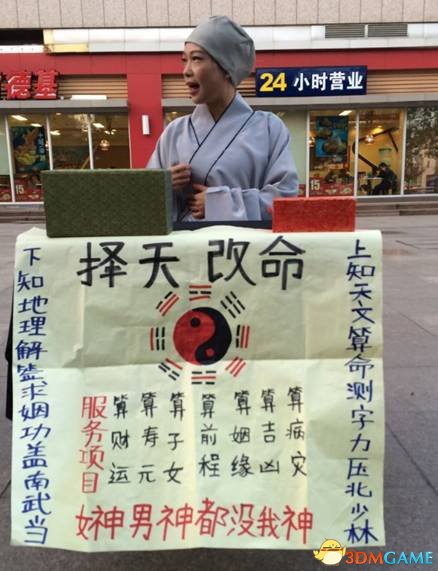 德基
24 小时营业
择天改命
上知天文算命测字力压北少林
下知地理解签求姻功盖南武当
服务项目
算财运
算寿元
算子女
算前程
算姻缘
算吉凶
算病灾
女神男神都没我神
3DMGAME